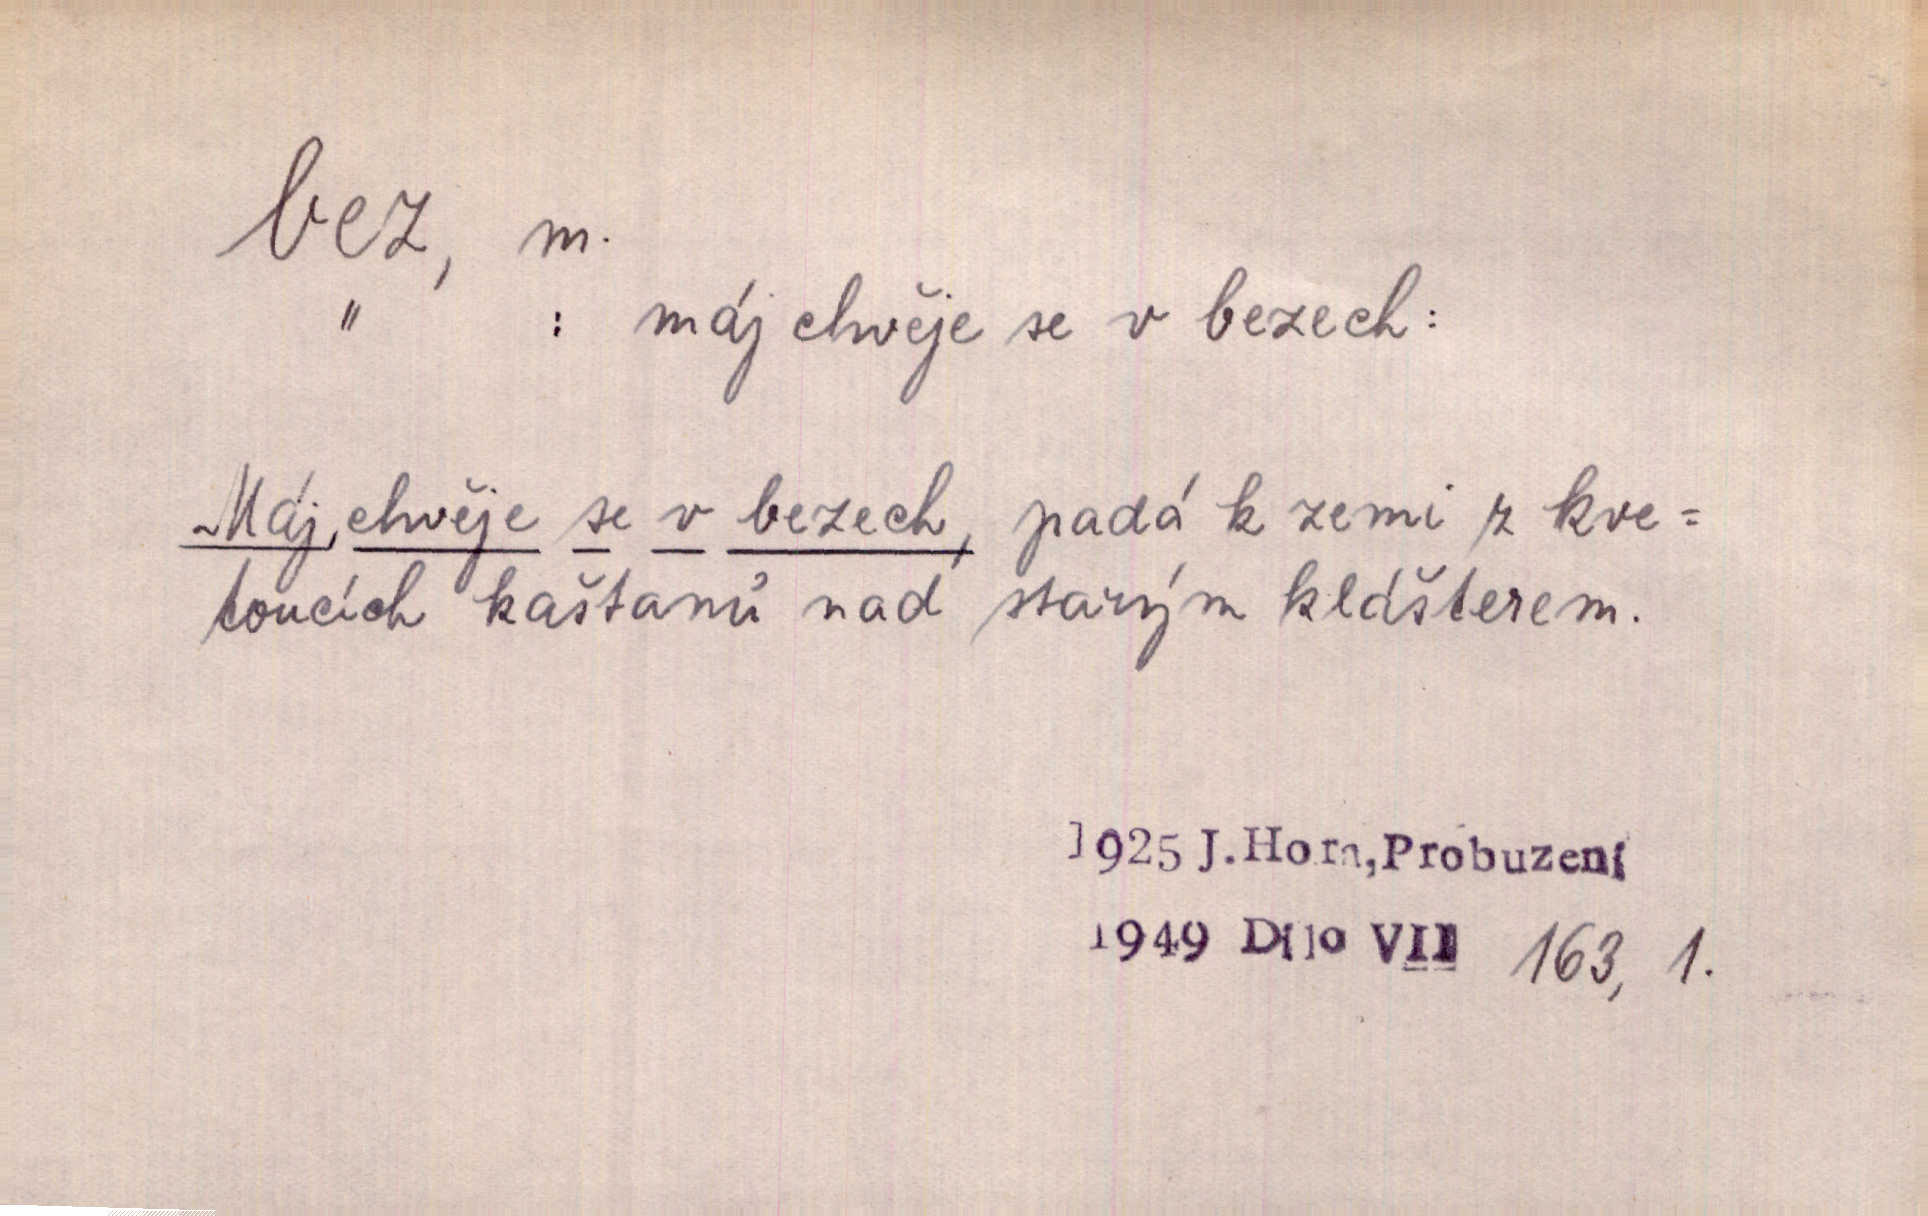 bez, m.
" : máj chvěje se v bezech:
Máj, chvěje se v bezech, padá k zemi z kve=
toucích kaštanů nad starým klášterem.
1925 J.Hora,Probuzení
1949 Dílo VII 163, 1.